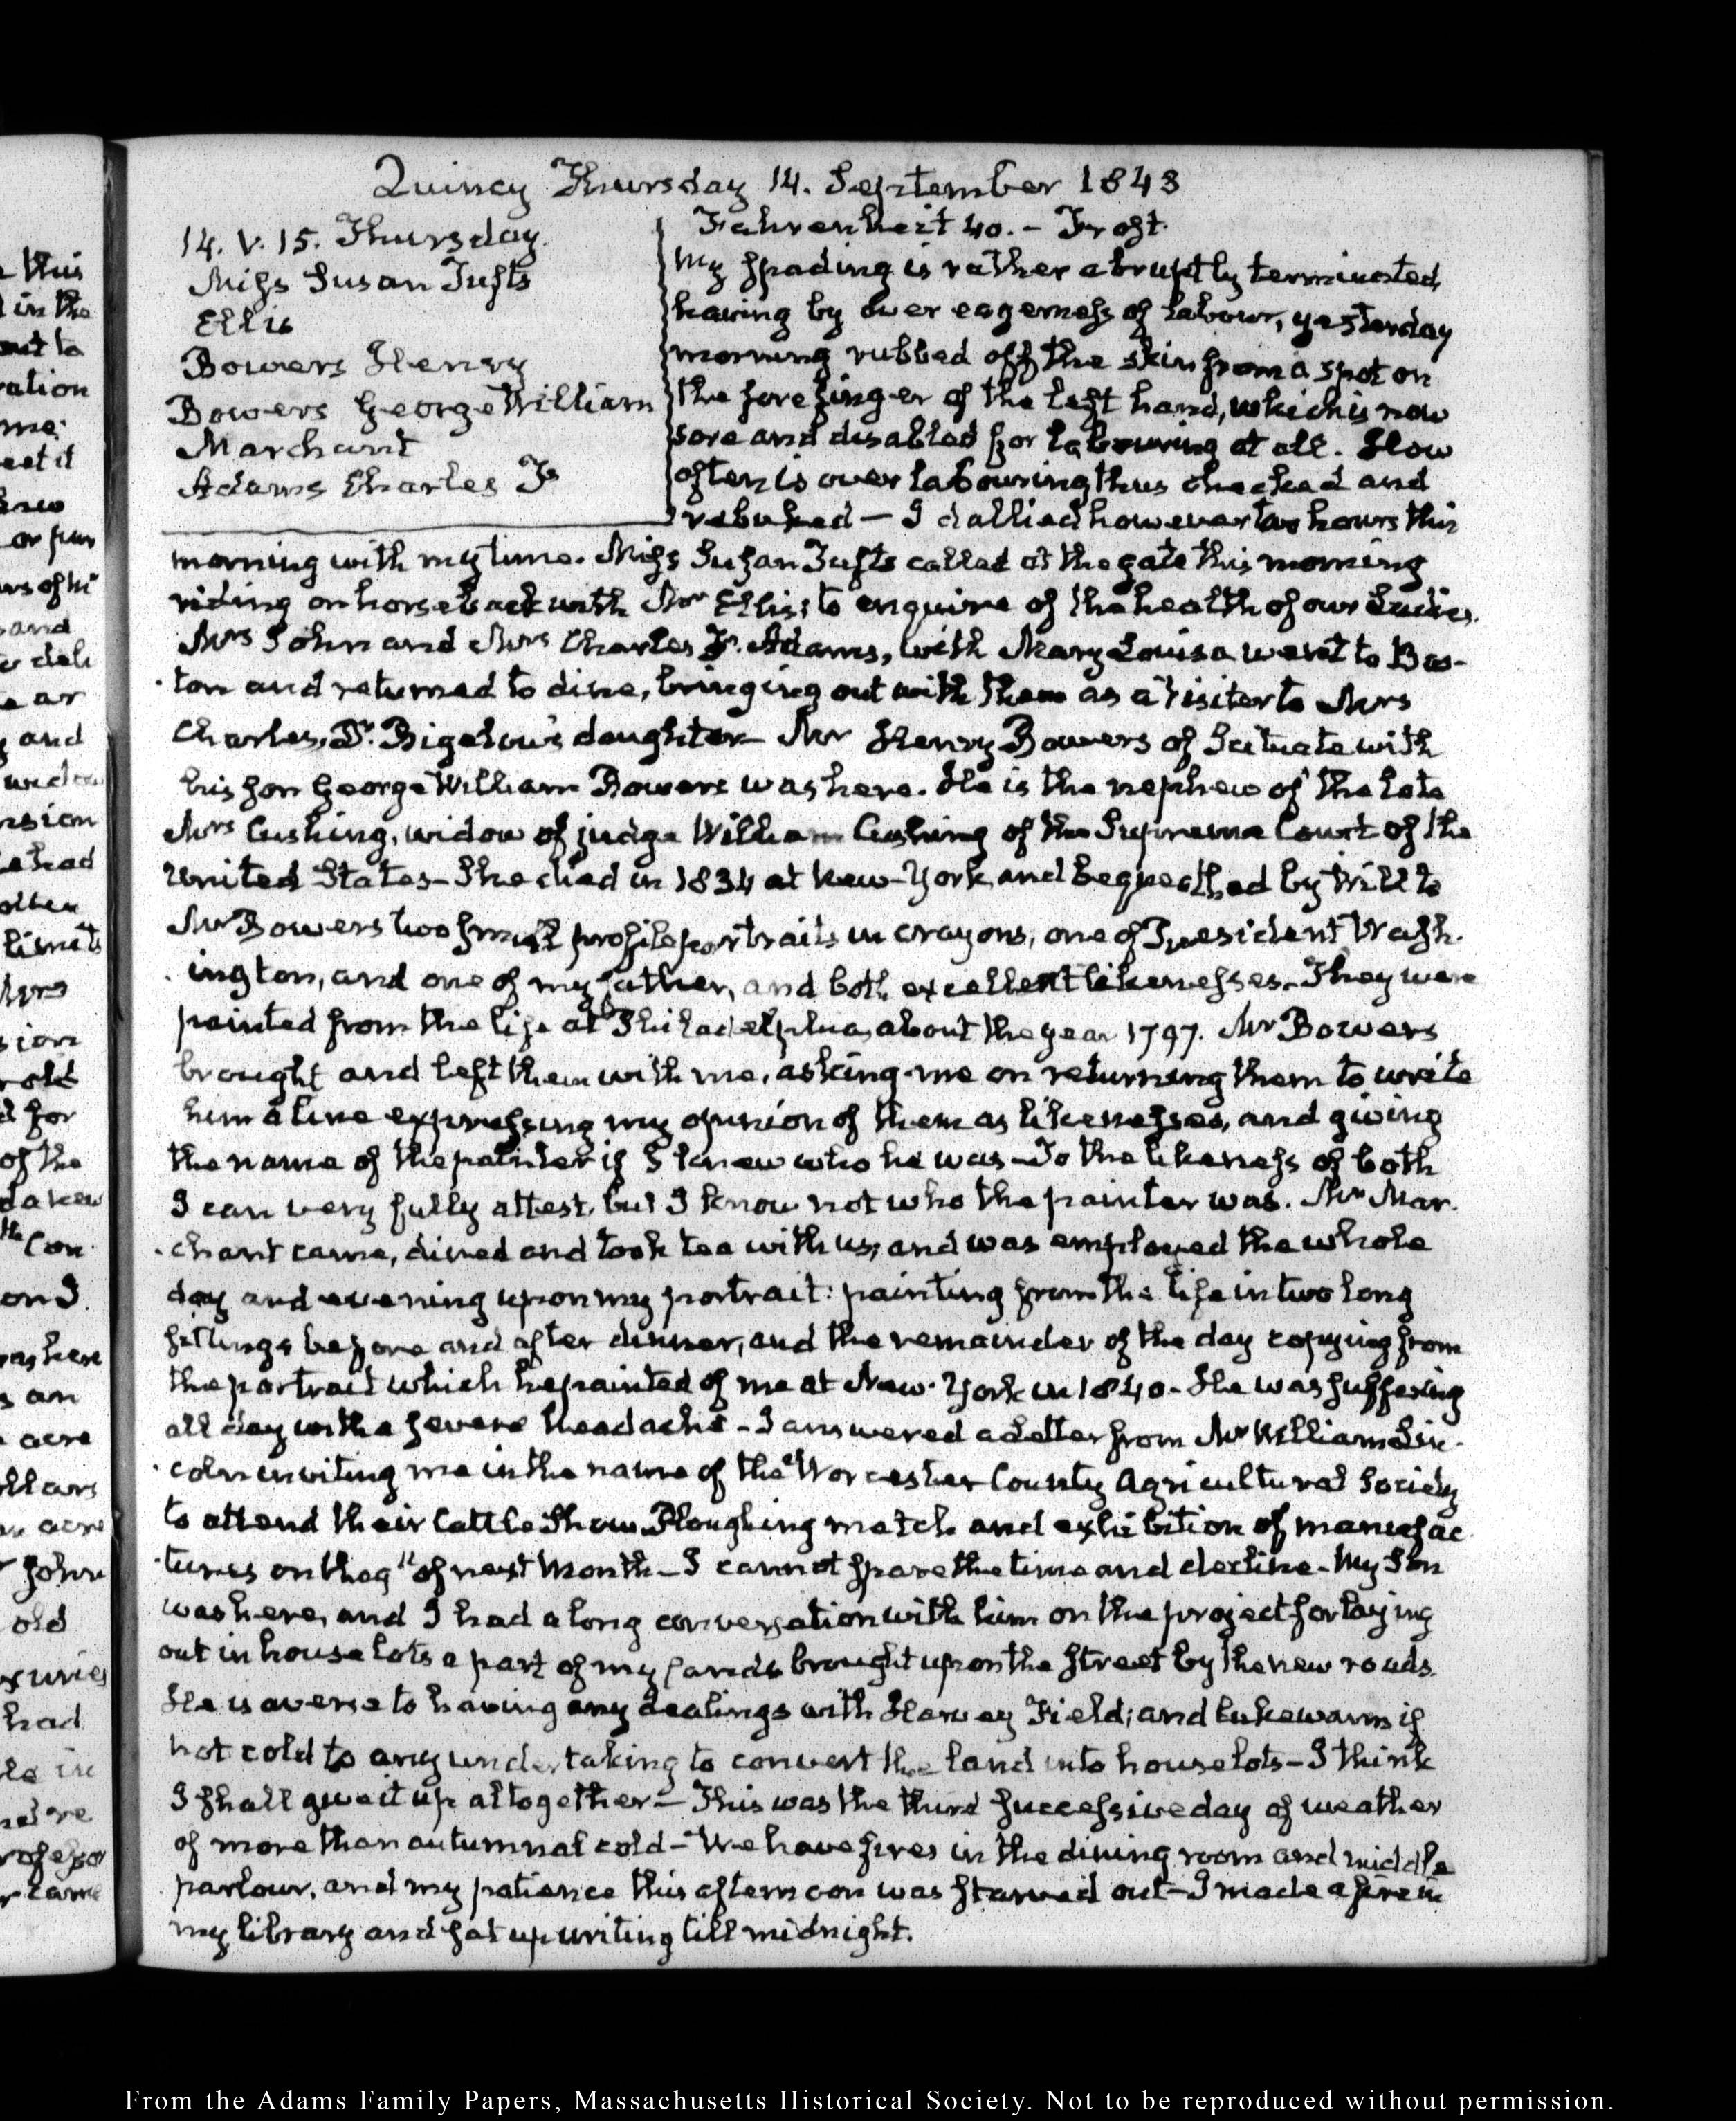 Quincy Thursday 14. September 1843
14. V. 15. Thursday.
Miss Susan Tufts
Ellis
Bowers Henry
Bowers George William
Marchant
Adams Charles F
Fahrenheit 40. - Frost.
My spading is rather abruptly terminated,
having by over eagerness of labour, yesterday
morning rubbed off the skin from a spot on
the forefinger of the left hand, which is now
sore and disabled for labouring at all. How
often is over labouring thus checked and
rebuked — I dallied however two hours this
morning with my time. Miss Susan Tufts called at the gate this morning
riding on horseback with Mr Ellis; to enquire of the health of our Ladies.
Mrs John and Mrs Charles F. Adams, with Mary Louisa went to Bos-
ton and returned to dine, bringing out with them as a visiter to Mrs
Charles, Dr. Bigelow's daughter — Mr Henry Bowers of Scituate with
his son George William Bowers was here. He is the nephew of the late
Mrs Cushing, widow of judge William Cushing of the Supreme Court of the
United States — She died in 1834 at New-York, and bequeathed by Will to
Mr Bowers two small profile portraits in crayons, one of President Wash-
ington, and one of my father, and both excellent likenesses. They were
painted from the life at Philadelphia, about the year 1797. Mr Bowers
brought and left them with me, asking me on returning them to write
him a line expressing my opinion of them as likenesses, and giving
the name of the painter if I knew who he was — To the likeness of both
I can very fully attest, but I know not who the painter was. Mr Mar-
chant came, dined and took tea with us; and was employed the whole
day and evening upon my portrait: painting from the life in two long
sittings before and after dinner, and the remainder of the day copying from
the portrait which he painted of me at New-York in 1840 - He was suffering
all day with a severe headache - I answered a Letter from Mr William Lin-
coln inviting me in the name of the Worcester County Agricultural Society
to attend their Cattle Show, Ploughing match and exhibition of manufac-
tures on the of next Month — I cannot spare the time and decline - My Son
was here, and I had a long conversation with him on the project for laying
out in house lots a part of my lands brought upon the street by the new roads.
He is averse to having any dealings with Harvey Field; and lukewarm if
not cold to any undertaking to convert the land into house lots — I think
I shall give it up altogether — This was the third successive day of weather
of more than autumnal cold — We have fires in the dining room and middle
parlour, and my patience this afternoon was starved out — I made a fire in
my library and sat up writing till midnight.
From the Adams Family Papers, Massachusetts Historical Society. Not to be reproduced without permission.